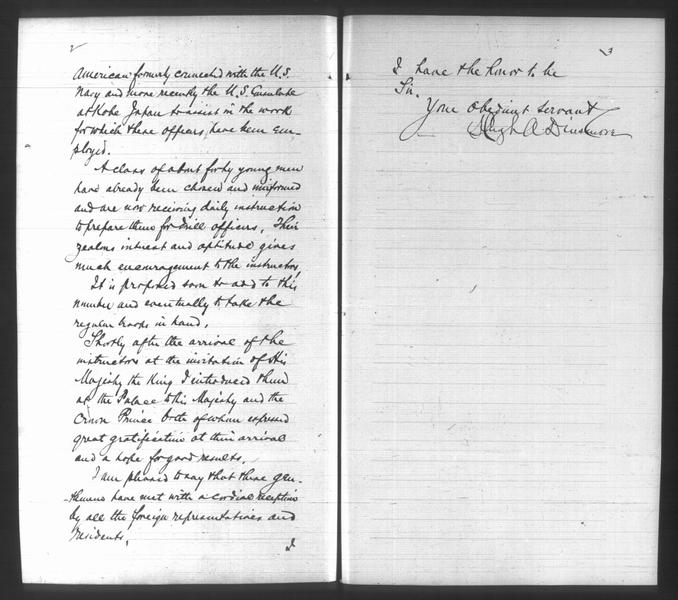 2
American formerly connected with the U.S.
Navy and more recently the U.S. Consulate
at Kobe Japan to assist in the work
for which these officers, have been em-
ployed.
A class of about forty young men
have already been chosen and uniformed
and are now receiving daily instruction
to prepare them for drill officers. Their
zealous interest and aptitude gives
much encouragement to the instructors,
It is proposed soon to add to this
number and eventually to take the
regular troops in hand.
Shortly after the arrival of the
instructors at the invitation of His
Majesty the King I introduced them
at the Palace to His Majesty and the
Crown Prince both of whom expressed
great gratification at their arrival
and a hope for good results.
I am pleased to say that these gen-
-tlemens have met with a cordial reception
by all the foreign representatives and
residents.
I
3
I have the honor to be
Sir.
Your obedient servant
Hugh A Dinsmore